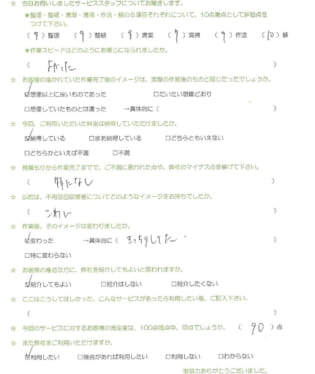 ☆ 当日お伺いしましたサービススタッフについてお聞きします。
★整理・整頓・清潔・清掃・作法・躾の6項目それぞれについて、10点満点として評価点をつけて下さい。
( 9 )整理 ( 9 )整頓 ( 8 )清潔 ( 9 )清掃 ( 9 )作法 ( 10 )躾
★作業スピードはどのようにお感じになられましたか。
( よかった )
☆ お客様の描かれていた作業完了後のイメージは、実際の作業後のものと同じだったでしょうか。
☑想像以上に良いものであった □だいたい想像どおり
□想像していたものとは違った →具体的に( )
☆ 今回、ご利用いただいた料金は納得していただけましたか。
☑納得している □まあ納得している □どちらともいえない
□どちらかといえば不満 □不満
☆ 見積もりから作業完了までで、ご不満に思われた点や、弊社のマイナス点を挙げて下さい。
( 特になし )
☆ 以前は、不用品回収業者についてどのようなイメージをお持ちでしたか。
( こわい )
☆ 作業後、そのイメージは変わりましたか。
☑変わった →具体的に( )
□特に変わらない
☆ お客様の身近な方に、弊社を紹介してもよいと思われますか。
☑紹介してもよい □紹介はしない □紹介したくない
☆ ここはこうしてほしかった、こんなサービスがあったら利用したい等、ご記入下さい。
( )
☆ 今回のサービスに対するお客様の満足度は、100点満点中、何点でしょうか。 ( 90 )点
☆ また弊社をご利用いただけますか。
☑利用したい □機会があれば利用したい □利用しない □わからない
御協力ありがとうございました。